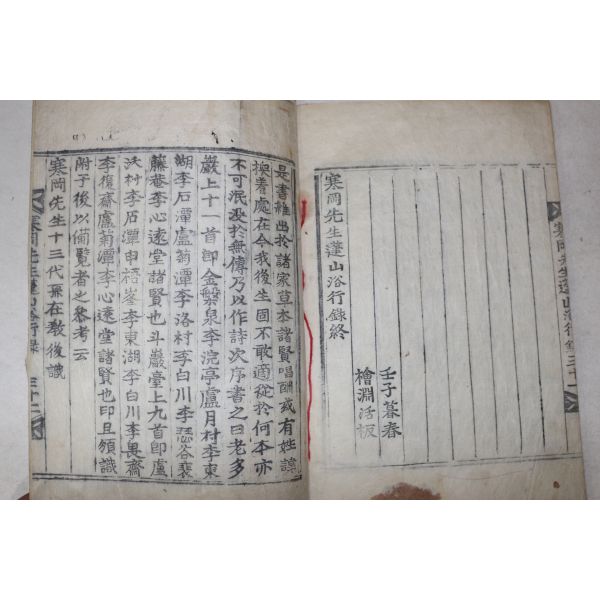 寒岡先生蓬山浴行錄 三十一
寒岡先生蓬山浴行錄終
壬子暮春
檜淵活板
是書雜出於諸家草本諸賢唱酬或有姓諱
換着處在今我後生固不敢適從於何本亦
不可泯沒於無傳乃以作詩次序書之曰老多
巖上十一首卽金槃泉李浣亭盧月村李東
湖李石潭盧菊潭李洛村李白川李 谷裵
藤菴李心遠堂諸賢也斗巖臺上九首卽盧
沃村李石潭申梧峯李東湖李白川李畏齋
李復齋盧菊潭李心遠堂諸賢也印且頒識
附于後以備覽者之參考云
寒岡先生十三代孫在敎後識
寒岡先生蓬山浴行錄 三十二